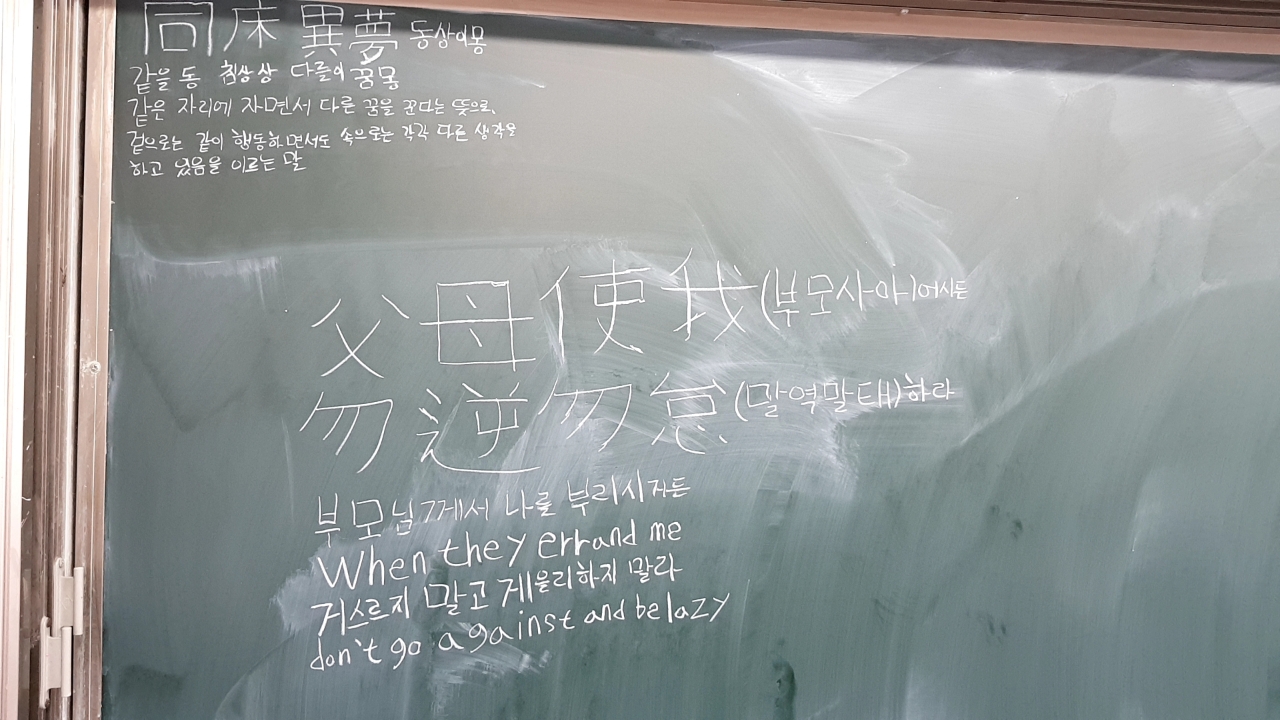 同床異夢 동상이몽
같을 동 침상 상 다를 이 꿈 몽
같은 자리에 자면서 다른 꿈을 꾼다는 뜻으로,
겉으로는 같이 행동하면서도 속으로는 각각 다른 생각을
하고 있음을 이르는 말
父母使我(부모사아)어시든
勿逆勿怠(말역말태)하라
부모님께서 나를 부리시거든
When they errand me
거스르지 말고 게을리하지 말라
don't go against and be lazy